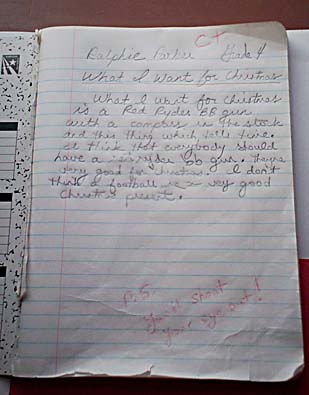 C+
Ralphie Parker Grade 4
What I Want for Christmas
What I want for Christmas
is a Red Ryder BB gun
with a compass in the stock
and this thing which tells time.
I think that everybody should
have a Red Ryder BB gun. They're
very good for Christmas. I don't
think a football is a very good
Christmas present.
P.S.
You'll shoot
your eye out!